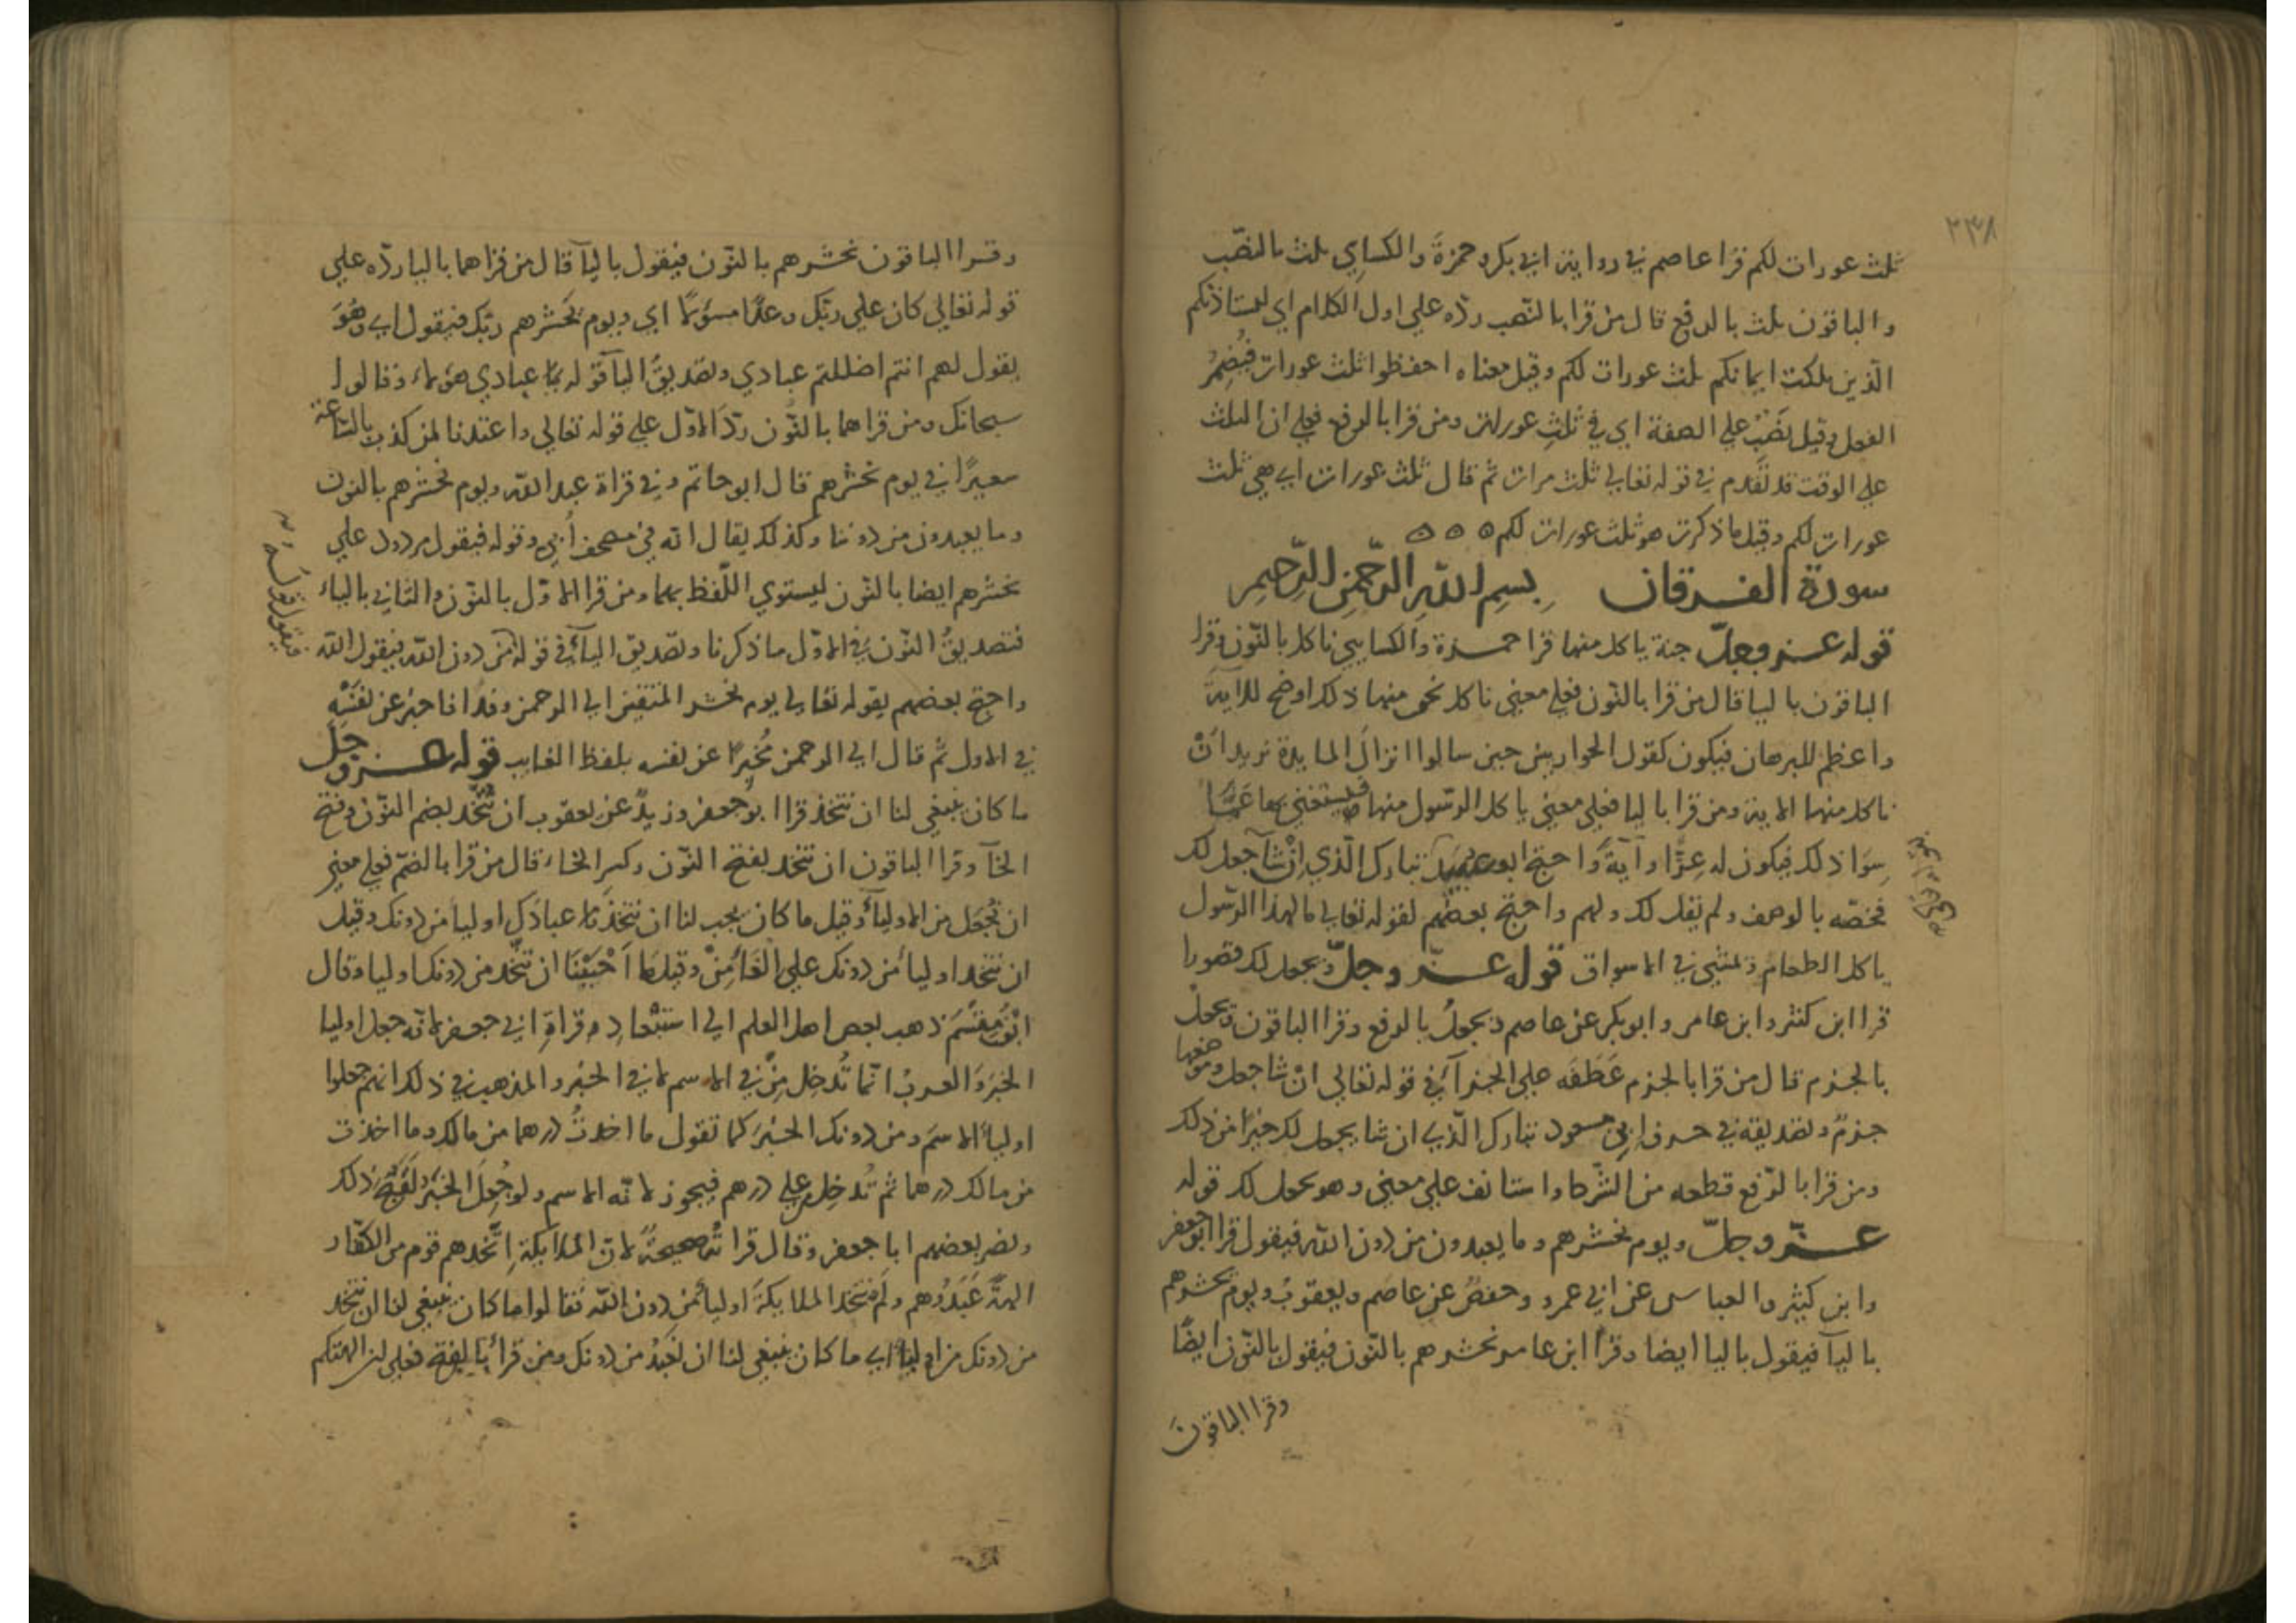 ٢٣٨
ثلث عورات لكم قرا عاصم في رواية ابي بكر وحمزة والكساي ثلث بالنصب
والباقون ثلث بالرفع قال من قرا بالنصب ردّه علي اول الكلام اي ليستاذنكم
الّذين ملكت ايمانكم ثلث عورات لكم وقيل معناه احفظوا ثلث عورات فيُضمِرُ
الفعل وقيل نَصْبٌ علي الصفة اي في ثلثِ عورات ومن قرا بالرفع فعلي ان الثلث
علي الوقت قد تَقَدم في قوله تعالي ثلث مرات ثم قال ثلث عورات اي هي ثلث
عورات لكم وقيل ما ذكرت هو ثلث عورات لكم ه ه ه
سورة الفرقان بِسمِ اللهِ الرّحمنِ الرّحيمِ
قوله عز وجلّ جنة ياكل منها قرا حمزة والكسايي ناكل بالنّون وقرا
الباقون باليا قال من قرا بالنّون فعلي معني ناكل نحن منها ذلك اوضح للآية
واعظم للبرهان فيكون كقول الحواريين حين سالوا انزالَ المايدة نريد اَنْ
ناكل منها الاية ومن قرا باليا فعلي معني ياكل الرسول منها فيستغني بها عمّا
سِوَا ذلك فيكون له عِزًّا وآيةً واحتج ابو عبيد تبارك الّذي اِنْ شآ جعل لك
فخصّه بالوصف ولم يقل لك ولهم واحتج بعضهم لقوله تعالي مالهذا الرّسول
ياكل الطعام ويمشي في الاسواق قوله عزّ وجلّ ويجعل لك قصورا
قرا ابن كثير وابن عامر وابوبكر عن عاصم ويجعلُ بالرفع وقرا الباقون ويجعلْ
بالجزم قال من قرا بالجزم عَطَفَه علي الجزآ في قوله تعالي انْ شا جعل وموضعها
جزمٌ وتصديقه في حرف ابن مسعود تبارك الّذي ان شا يجعل لك خيرًا من ذلك
ومن قرا بالرّفع قطعه من الشّرط واستانف علي معني وهو يجعل لك قوله
عزّ وجلّ ويوم يحشرهم وما يعبدون من دون الله فيقول قرا ابو جعفر
وابن كثير والعباس عن ابي عمرو وحفصٌ عن عاصم ويعقوبُ ويوم يحشرهم
باليآ فيقول باليا ايضا وقرا ابن عامر نحشرهم بالنّون فنقول بالنّون ايضًا
وقرا الباقون
وقرا الباقون نحشرهم بالنّون فيقول باليآ قال من قراهما باليا ردّه علي
قوله تعالي كان علي ربّك وعدًا مسؤلًا اي ويوم يَحشرهم ربّك فيقول اي وهُوَ
يقول لهم انتم اضللتم عبادي وتصديقُ اليآ قوله عبادي هؤلاء وقالوا
سبحانك ومن قراهما بالنّون ردّ الاوّل علي قوله تعالي واعتدنا لمن كذب بالسّاعة
سعيرًا في يوم نحشرهم قال ابو حاتم وفي قراة عبد الله ويوم نحشرهم بالنون
وما يعبدون من دوننا وكذلك يقال انه في مصحف اُبيّ وقوله فيقول مردود علي
نحشرهم ايضا بالنّون ليستوي اللّفظ بهما ومن قرا الاوّل بالنّون والثاني بالياء
فتصديقُ النّون في الاوّل ما ذكرنا وتصديق اليآ في قوله من دون الله فيقول الله
واحتج بعضهم بقوله تعالي يوم نحشر المتقين الي الرحمن وفدًا فاخبر عن نفسه
في الاول ثم قال الي الرحمن مُخبِرًا عن نفسه بلفظ الغايب قوله عز وجل
ما كان ينبغي لنا ان نتخذ قرا ابو جعفر وزيدٌ عن يعقوب ان نُتّخَذ بضم النّون وفتح
الخآ وقرا الباقون ان نتخذ بفتح النّون وكسر الخاء قال من قرا بالضمّ فعلي معني
ان نُجعَل من الاولياء وقيل ما كان يجب لنا ان نتخذ عبادَك اوليا من دونك وقيل
ان نتخذ اوليا من دونك علي الغا مِنْ وقيل ما اَحْبَبْنَا ان نتّخذ من دونك اوليا وقال
ابن مِقْسَم ذهب بعض اهل العلم الي استبْعادِ قراةِ ابي جعفر لانه جعل اوليا
الخبرَ والعربُ انّما تُدخِل مِنْ في الاسم لا في الخبر والمذهب في ذلك انهم جعلوا
اولياَ الاسمَ ومن دونك الخبرَ كما تقول ما اخذتُ درهما من مالك وما اخذت
من مالك درهما ثم تُدخِل علي درهم فيجوز لانّه الاسم ولو جُعِلَ الخبَرَ لَقَبُحَ ذلك
ونصر بعضهم ابا جعفر وقال قرا ته صحيحةٌ لانّ الملايكة اِتّخذهم قوم من الكفّار
الهةً عَبَدُوهم ولم نتّخذ الملايكةَ اولياَ من دون الله فقالوا ما كان ينبغي لنا ان نتخذ
من دونك من اولياَ اي ما كان ينبغي لنا ان نُعْبَدُ من دونك ومن قرا بالفتح فعلي لن الهتكم